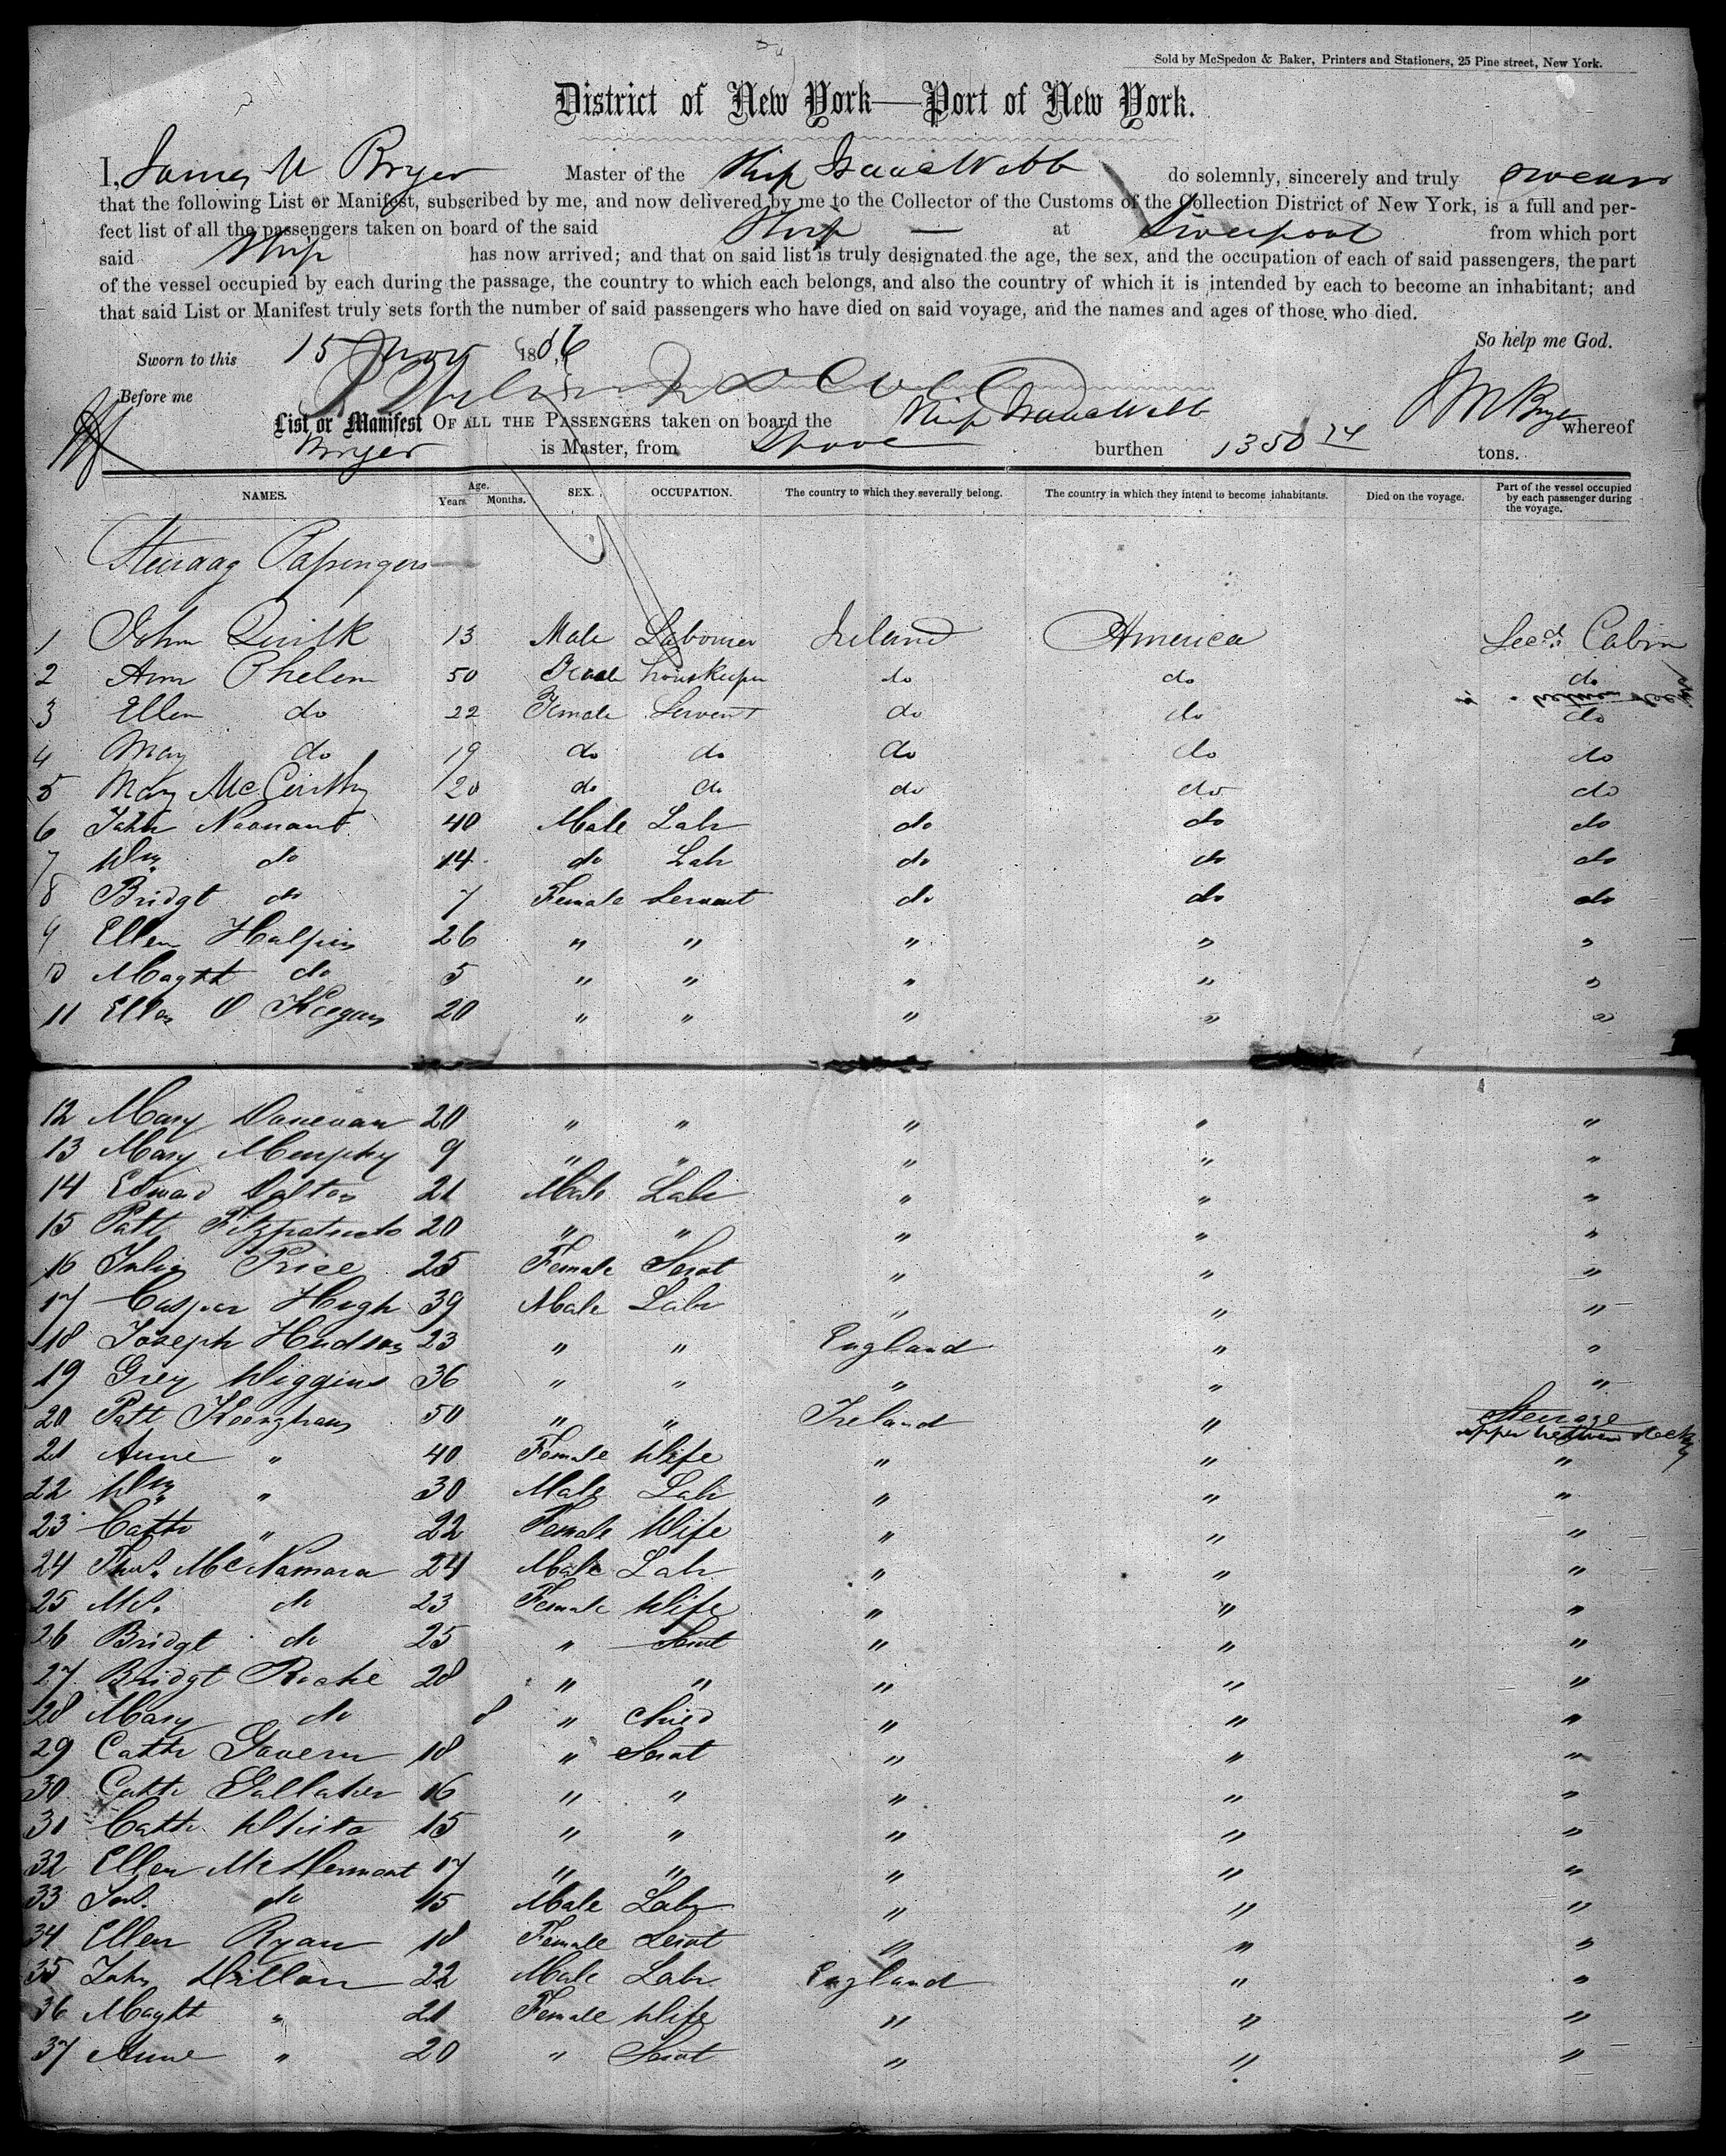 Sold by McSpedon & Baker, Printers and Stationers, 25 Pine street, New York.
District of New York—Port of New York.
I, James M Bryer Master of the Ship Isaac Webb do solemnly, sincerely and truly swear
that the following List or Manifest, subscribed by me, and now delivered by me to the Collector of the Customs of the Collection District of New York, is a full and per-
fect list of all the passengers taken on board of the said Ship — at Liverpool from which port
said Ship has now arrived; and that on said list is truly designated the age, the sex, and the occupation of each of said passengers, the part
of the vessel occupied by each during the passage, the country to which each belongs, and also the country of which it is intended by each to become an inhabitant; and
that said List or Manifest truly sets forth the number of said passengers who have died on said voyage, and the names and ages of those who died.
So help me God.
Sworn to this 15 Nov 1856
Before me J M Bryer
List or Manifest OF ALL THE PASSENGERS taken on board the Ship Isaac Webb whereof
Bryer is Master, from Lpool burthen 1350 74 tons.
NAMES. Age. Years. Months. SEX. OCCUPATION. The country to which they severally belong. The country in which they intend to become inhabitants. Died on the voyage. Part of the vessel occupied by each passenger during the voyage.
Steraag Passengers
1 John Quilk 13 Male Labourer Ireland America Secd. Cabin
2 Ann Phelem 50 Female houskeeper do do do
3 Ellen do 22 Female Servent do do do
4 May do 19 do do do do do
5 May McCarthy 20 do do do do do
6 John Noonant 40 Male Labr do do do
7 Wm do 14 do Labr do do do
8 Bridgt do 7 Female Servant do do do
9 Ellen Halpin 26 " " " " "
10 Magtt do 5 " " " " "
11 Ellen O Keegan 20 " " " " "
12 Mary Donevan 20 " " " " "
13 Mary Murphy 9 " " " " "
14 Edward Dalton 21 Male Labr " " "
15 Patt Fitzpatrick 20 " " " " "
16 Julia Rice 25 Female Servt " " "
17 Casper Hugh 39 Male Labr " " "
18 Joseph Hudson 23 " " England " "
19 Grey Wiggins 36 " " " " "
20 Patt Keoughan 50 " " Ireland " Steerage
upper between decks
21 Anne " 40 Female Wife " " "
22 Wm " 30 Male Labr " " "
23 Cathe " 22 Female Wife " " "
24 Thos. McNamara 24 Male Labr " " "
25 Ms. do 23 Female Wife " " "
26 Bridgt do 25 " Servt " " "
27 Bridgt Roche 28 " " " " "
28 Mary do 8 " Child " " "
29 Cathe Govern 18 " Servt " " "
30 Cathe Gallaher 16 " " " " "
31 Cathe White 15 " " " " "
32 Ellen McDermont 17 " " " " "
33 Jas. do 15 Male Labr " " "
34 Ellen Ryan 18 Female Servt " " "
35 John Dillon 22 Male Labr England " "
36 Magtt " 21 Female Wife " " "
37 Anne " 20 " Servt " " "